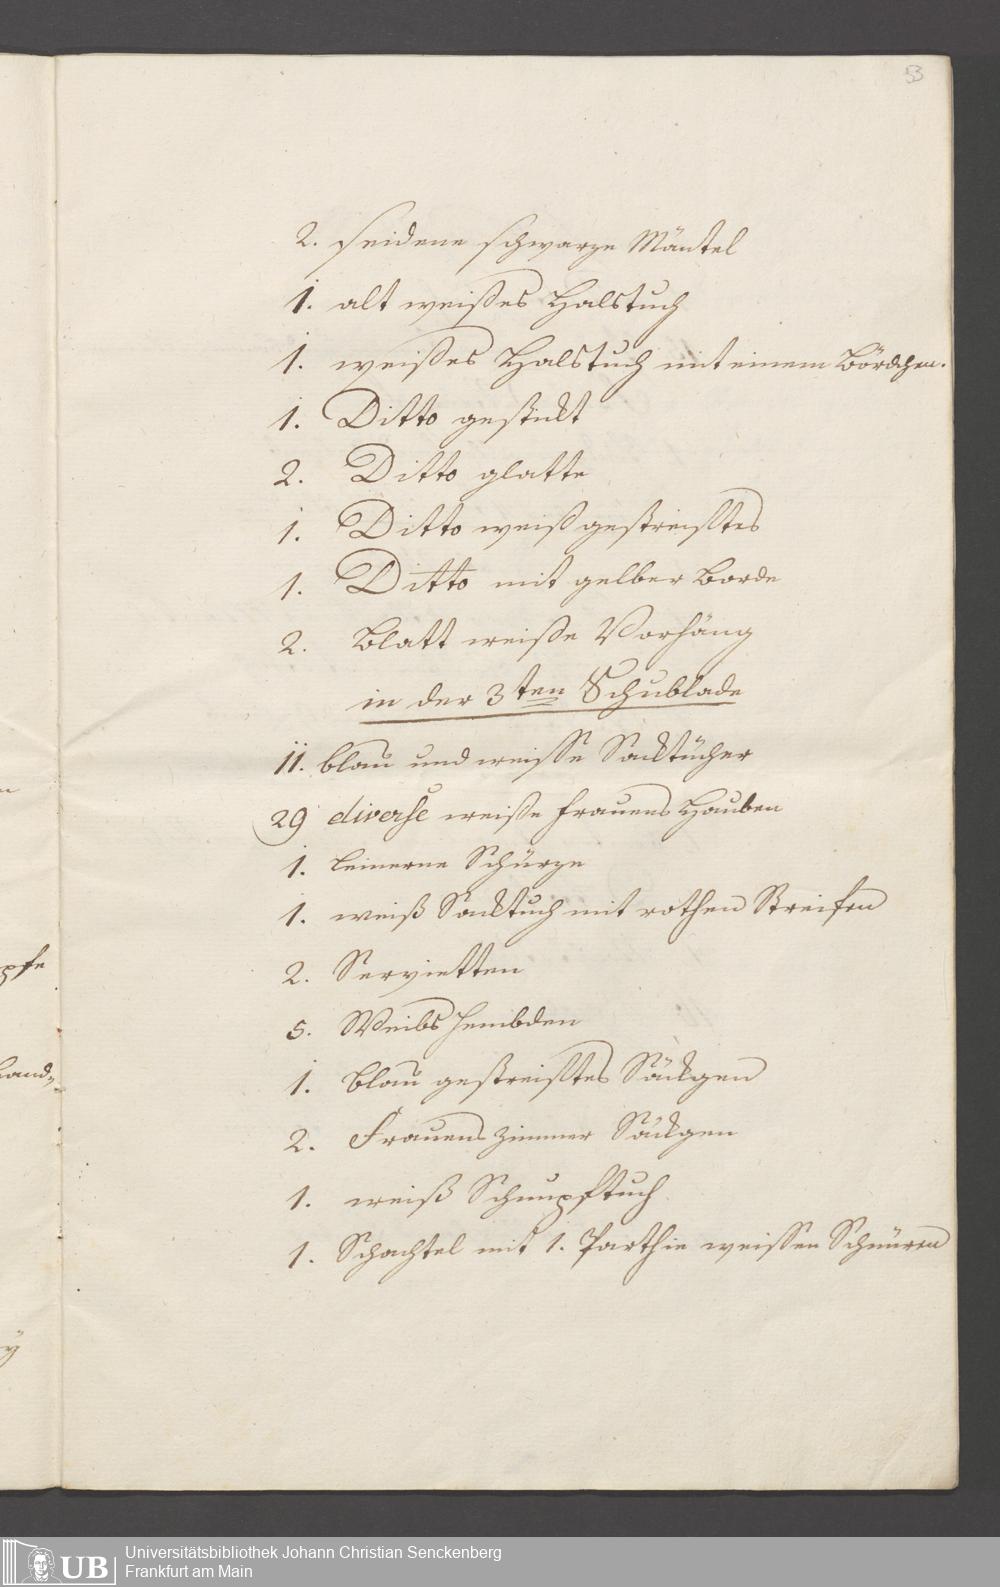 53
2. seidene schwarze Mäntel
1. alt weißes Halstuch
1. weißes Halstuch mit einem Bördchen.
1. Ditto gestickt
2. Ditto glatte
1. Ditto weiß gestreifftes
1. Ditto mit gelber Borde
2. Blatt weiße Vorhäng
in der 3ten Schublade
11. blau und weisse Sacktücher
29 diverse weiße Frauens Hauben
1. leinerne Schürze
1. weiß Sacktuch mit rothen Streifen
2. Servietten
5. Weibs Hembden
1. blau gestreifftes Säckgen
2. Frauenszimmer Säckgen
1. weiß Schnupftuch
1. Schachtel mit 1. Parthie weissen Schnüren
pfe
UB
Universitätsbibliothek Johann Christian Senckenberg
Frankfurt am Main